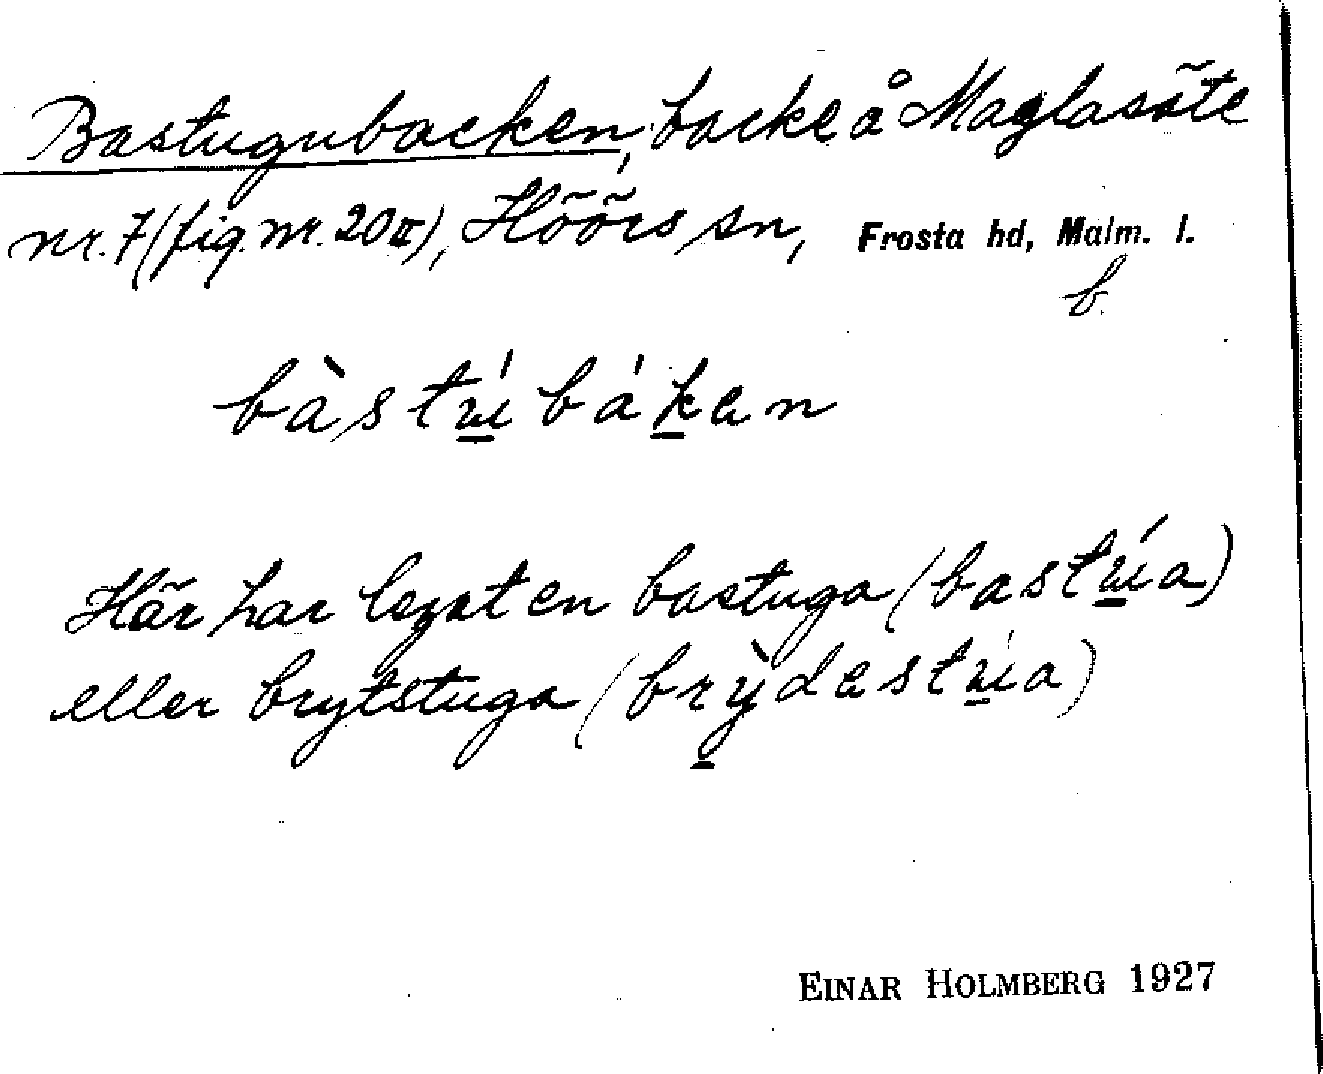 Bastugubacken, backe å Maglasäte
nr. 7 (fig. nr. 20 II), Höörs sn, Frosta hd, Malm. l.
b.
bàstẁíbákan
Här har legat en bastuga (bastẁía)
eller brytstuga (brỳdastẁía)
EINAR HOLMBERG 1927